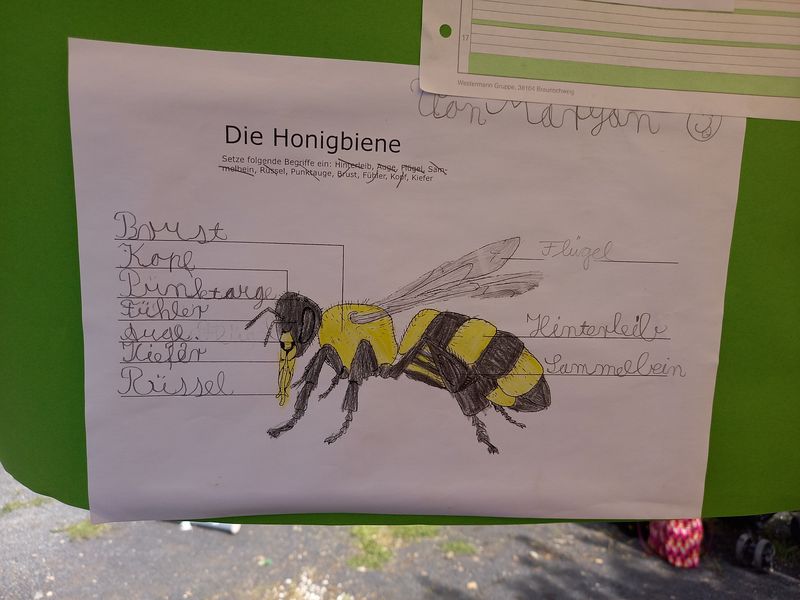 17
Westermann Gruppe, 38104 Braunschweig
Von Maryan 3
Die Honigbiene
Setze folgende Begriffe ein: Hinterleib, Auge, Flügel, Sam-
melbein, Rüssel, Punktauge, Brust, Fühler, Kopf, Kiefer
Brust
Kopf
Pünktauge
Fühler
Auge.
Kiefer
Rüssel
Flügel
Hinterleib
Sammelbein